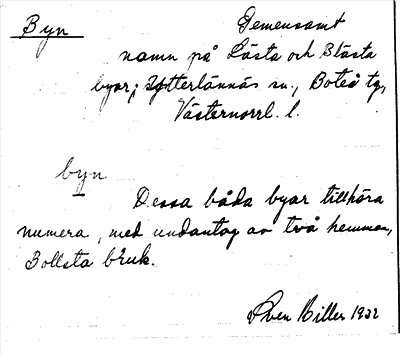 Byn Gemensamt
namn på Lästa och Blästa
byar; Ytterlännäs sn., Boteå tg,
Västernorrl. l.
byn
Dessa båda byar tillhöra
numera, med undantag av två hemman,
Bollsta bruk.
Sven Hiller 1932